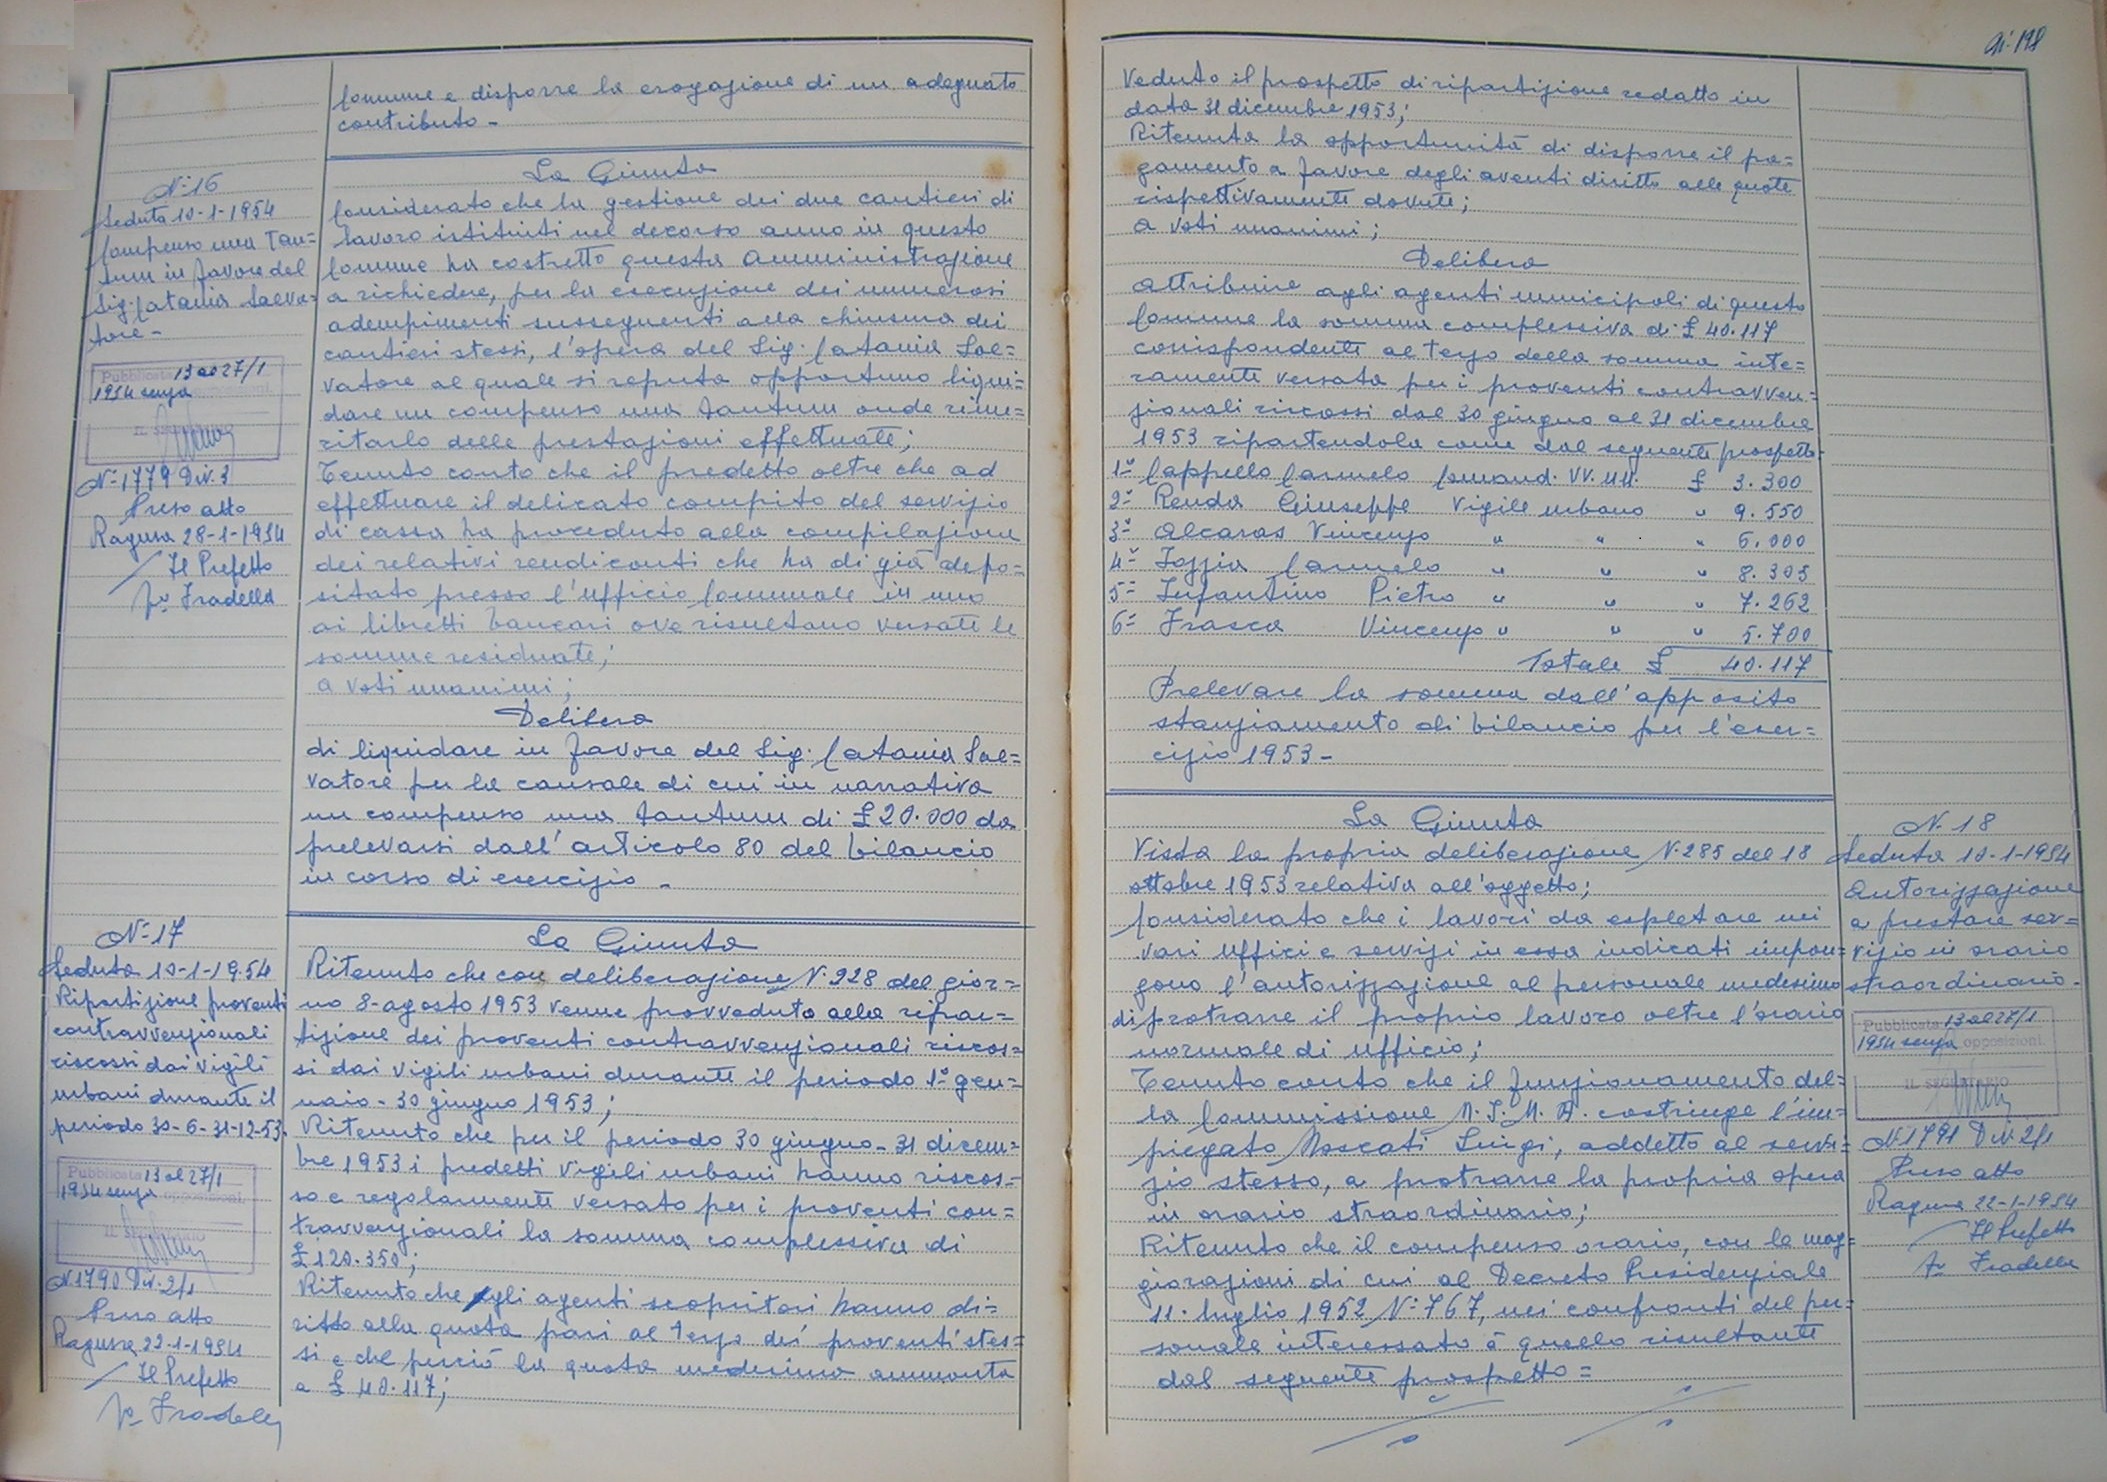 Comune e disporre la erogazione di un adeguato
contributo -
N. 16
Seduta 10-1-1954
Compenso una Tan=
tum in favore del
Sig. Catania Salva=
tore -
Pubblicata 13 al 27/1
1954 senza opposizioni.
IL SEGRETARIO
N. 1779 Div. 3
Preso atto
Ragusa 28-1-1954
Il Prefetto
La Giunta
Considerato che la gestione dei due cantieri di
lavoro istituiti nel decorso anno in questo
Comune ha costretto questa Amministrazione
a richiedere, per la esecuzione dei numerosi
adempimenti susseguenti alla chiusura dei
cantieri stessi, l'opera del Sig. Catania Sal=
vatore al quale si reputa opportuno liqui=
dare un compenso una tantum onde rime=
ritarlo delle prestazioni effettuate;
Tenuto conto che il predetto oltre che ad
effettuare il delicato compito del servizio
di cassa ha proceduto alla compilazione
dei relativi rendiconti che ha di già depo=
sitato presso l'ufficio Comunale in uno
ai libretti bancari ove risultano versate le
somme residuate;
a voti unanimi;
Delibera
di liquidare in favore del Sig. Catania Sal=
vatore per la causale di cui in narrativa
un compenso una tantum di £ 20.000 da
prelevarsi dall'articolo 80 del bilancio
in corso di esercizio -
N. 17
Seduta 10-1-1954
Ripartizione proventi
contravvenzionali
riscossi dai vigili
urbani durante il
periodo 30-6-31-12-53.
Pubblicata 13 al 27/1
1954 senza opposizioni.
IL SEGRETARIO
N. 1790 Div. 2/1
Preso atto
Ragusa 22-1-1954
Il Prefetto
La Giunta
Ritenuto che con deliberazione N. 228 del gior=
no 8-agosto 1953 venne provveduto alla ripar=
tizione dei proventi contravvenzionali riscos=
si dai vigili urbani durante il periodo 1° gen=
naio - 30 giugno 1953;
Ritenuto che per il periodo 30 giugno - 31 dicem=
bre 1953 i predetti vigili urbani hanno riscos=
so e regolarmente versato per i proventi con=
travvenzionali la somma complessiva di
£ 120.350;
Ritenuto che gli agenti scopritori hanno di=
ritto alla quota pari al terzo dei proventi stes=
si e che perciò la quota medesima ammonta
a £ 40.117;
Veduto il prospetto di ripartizione redatto in
data 31 dicembre 1953;
Ritenuta la opportunità di disporre il pa=
gamento a favore degli aventi diritto alle quote
rispettivamente dovute;
a voti unanimi;
Delibera
attribuire agli agenti municipali di questo
Comune la somma complessiva di £ 40.117
corrispondente al terzo della somma inte=
ramente versata per i proventi contravven=
zionali riscossi dal 30 giugno al 31 dicembre
1953 ripartendola come dal seguente prospetto-
1° Cappello Carmelo Comand. VV. UU. £ 3.300
2° Renda Giuseppe Vigile urbano " 9.550
3° Alcaras Vincenzo " " " 6.000
4° Iozzia Carmelo " " " 8.305
5° Infantino Pietro " " " 7.262
6° Frasca Vincenzo " " " 5.700
Totale £ 40.117
Prelevare la somma dall'apposito
stanziamento di bilancio per l'eser=
cizio 1953 -
La Giunta
Vista la propria deliberazione N. 285 del 18
ottobre 1953 relativa all'oggetto;
Considerato che i lavori da espletare nei
vari uffici e servizi in essa indicati impon=
gono l'autorizzazione al personale medesimo
di protrarre il proprio lavoro oltre l'orario
normale di ufficio;
Tenuto conto che il funzionamento del=
la Commissione costringe l'im=
piegato Moscati Luigi, addetto al servi=
zio stesso, a protrarre la propria opera
in orario straordinario;
Ritenuto che il compenso orario, con le mag=
giorazioni di cui al Decreto Presidenziale
11 luglio 1952 N. 767, nei confronti del per=
sonale interessato è quello risultante
dal seguente prospetto =
N. 18
Seduta 10-1-1954
Autorizzazione
a prestare ser=
vizio in orario
straordinario.
Pubblicata 13 al 27/1
1954 senza opposizioni.
IL SEGRETARIO
N. 1791 Div. 2/1
Preso atto
Ragusa 22-1-1954
Il Prefetto